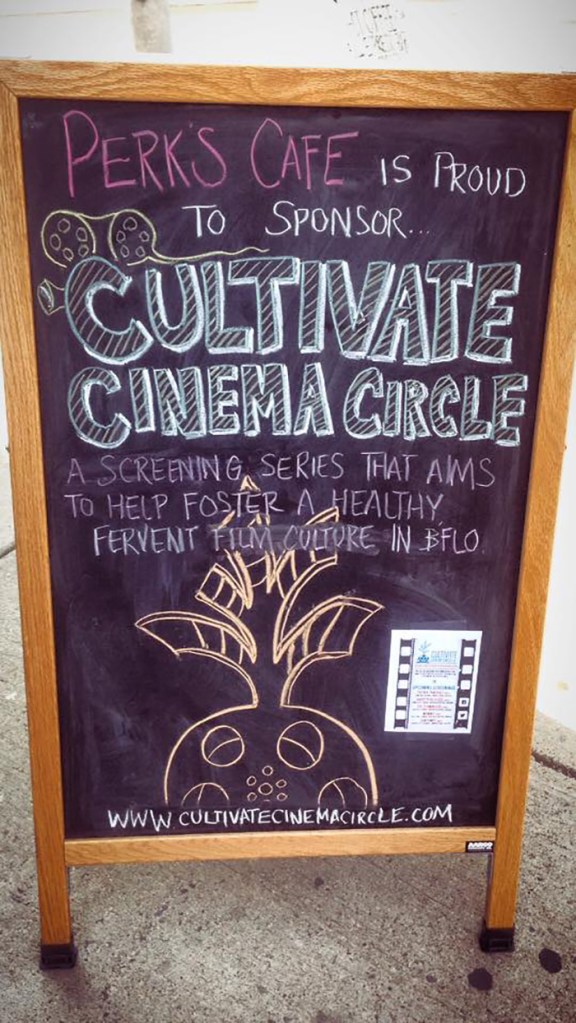 PERK'S CAFE IS PROUD
TO SPONSOR...
CULTIVATE
CINEMA CIRCLE
A SCREENING SERIES THAT AIMS
TO HELP FOSTER A HEALTHY
FERVENT FILM CULTURE IN BFLO.
CULTIVATE
WWW.CULTIVATECINEMACIRCLE.COM
AARCO